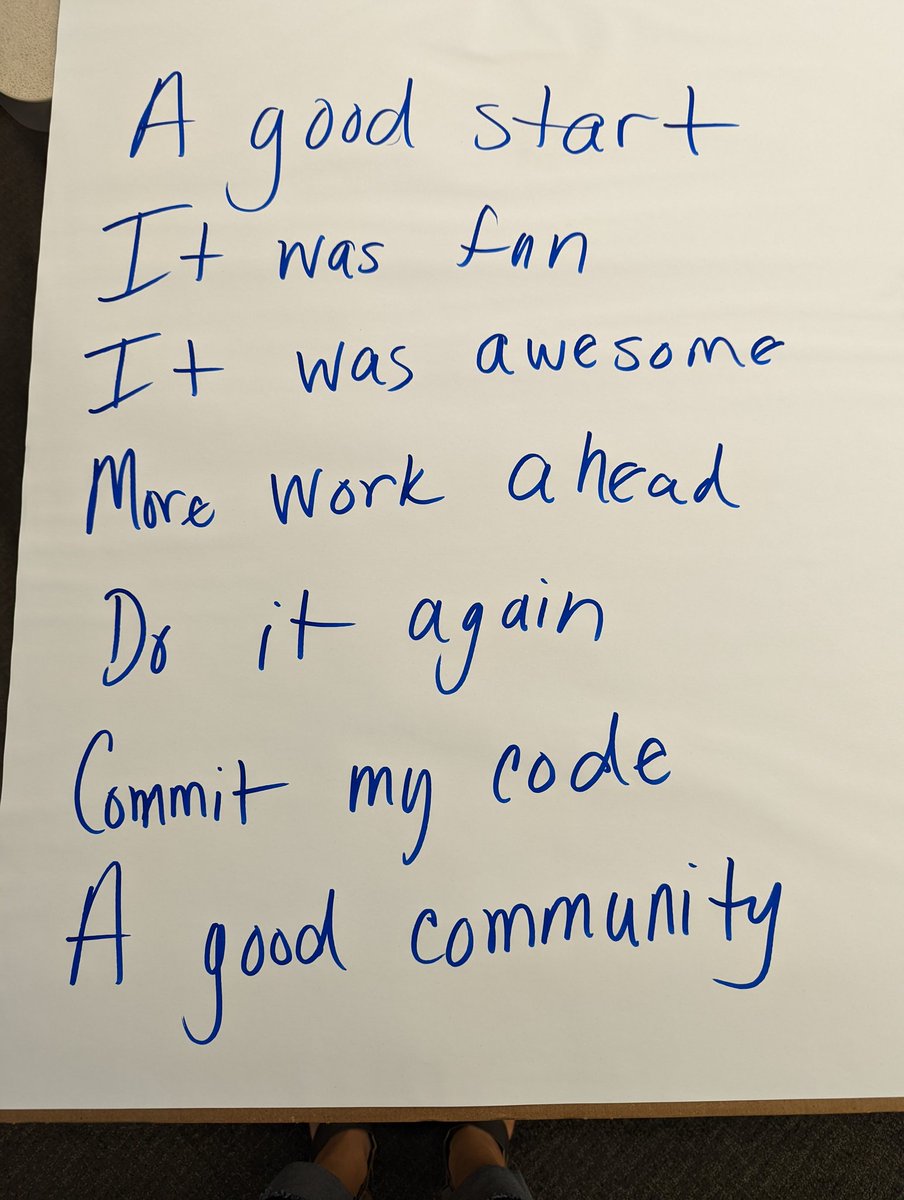 A good start
It was fun
It was awesome
More work ahead
Do it again
Commit my code
A good community